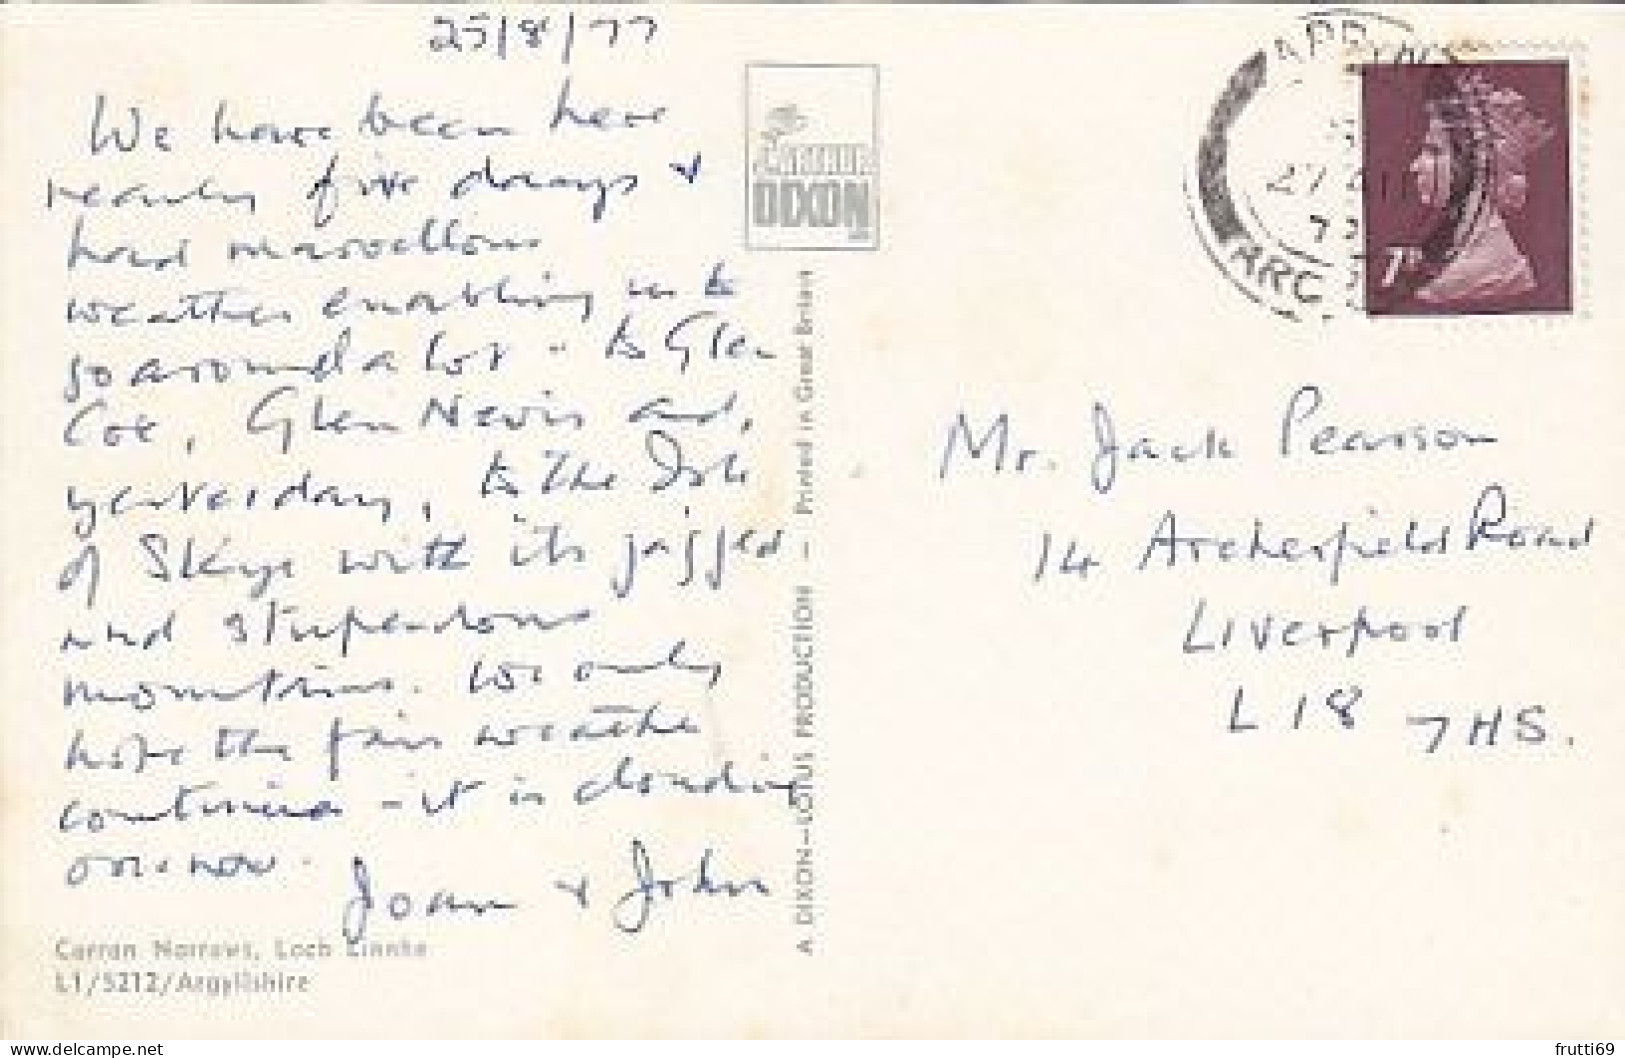 25/8/77
We have been here
nearly five days &
had marvellous
weather enabling us to
go around a lot - to Glen
Coe, Glen Nevis and,
yesterday, to the Isle
of Skye with its jagged
and stupendous
mountains. We only
hope the fair weather
continues - it is clouding
over now.
Joan & John
Corran Narrows, Loch Linnhe
L1/5212/Argyllshire
ARTHUR
DIXON
A DIXON—LOTUS PRODUCTION — Printed in Great Britain
27
ARG.
7P
Mr. Jack Pearson
14 Archerfield Road
Liverpool
L18 7HS.
frutti69
www.delcampe.net